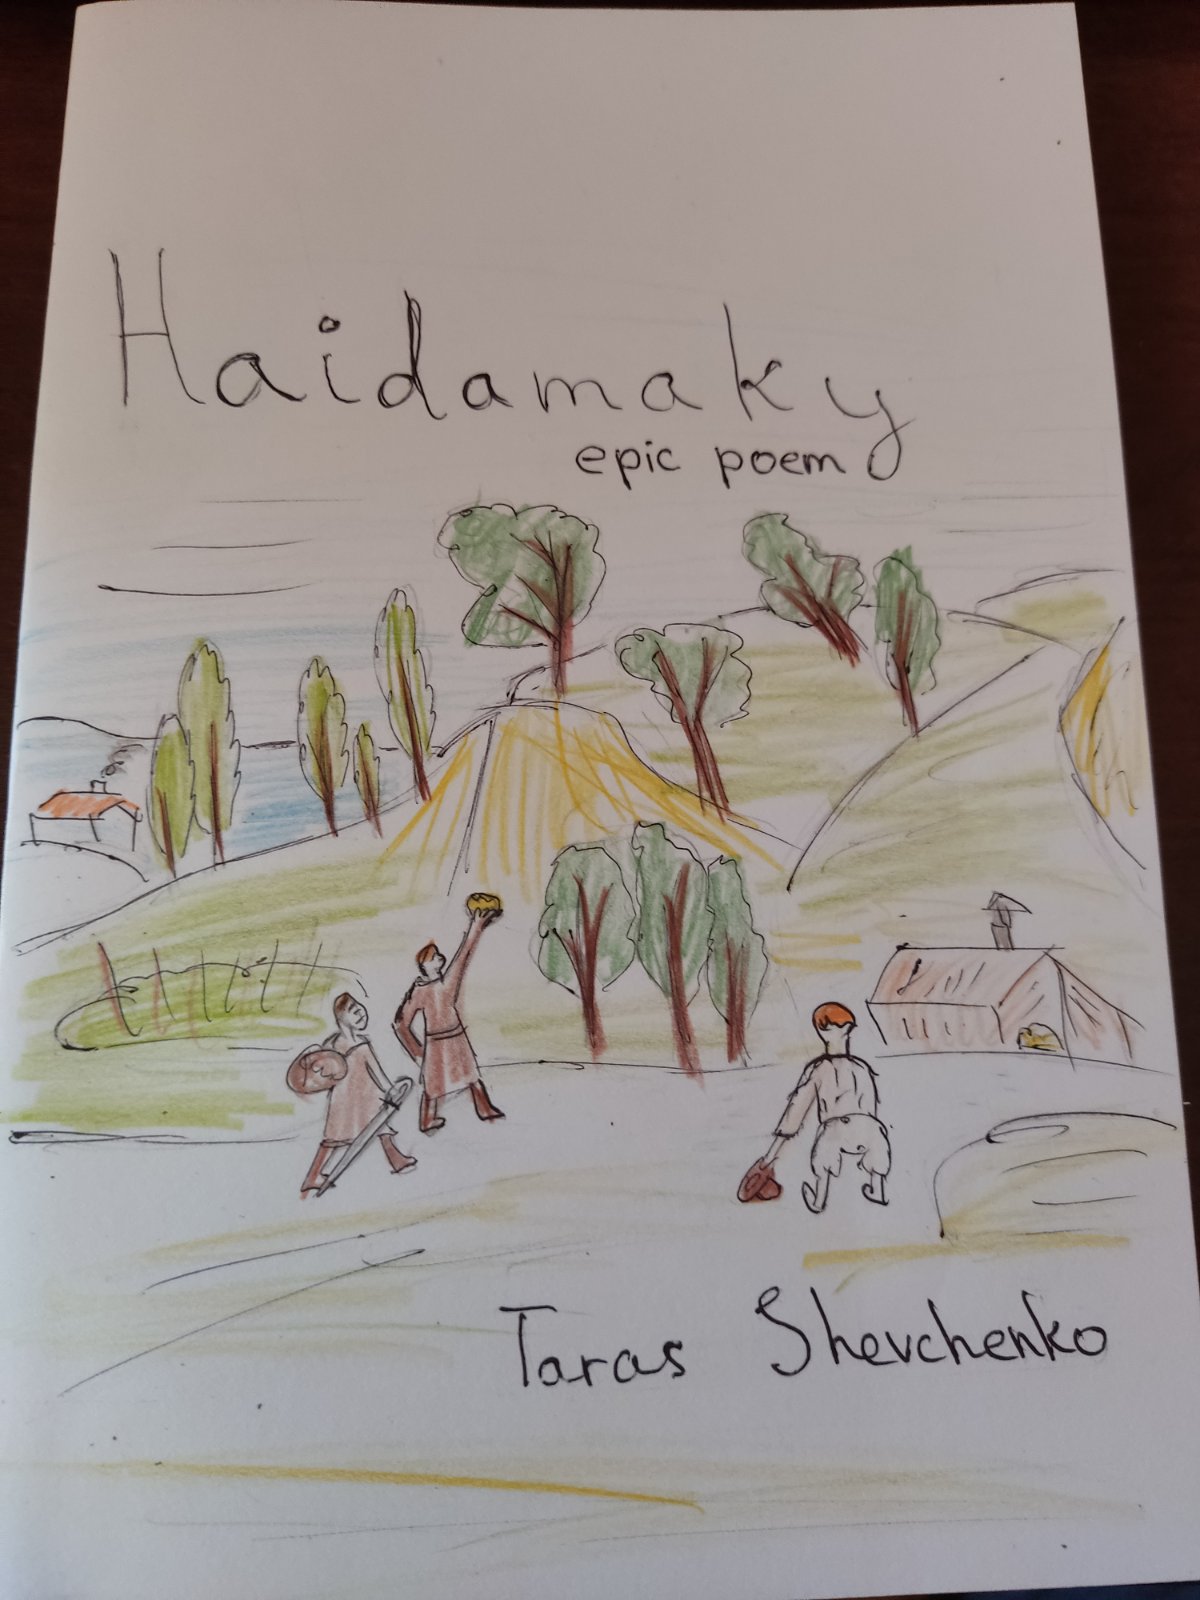 Haidamaky
epic poem
Taras Shevchenko